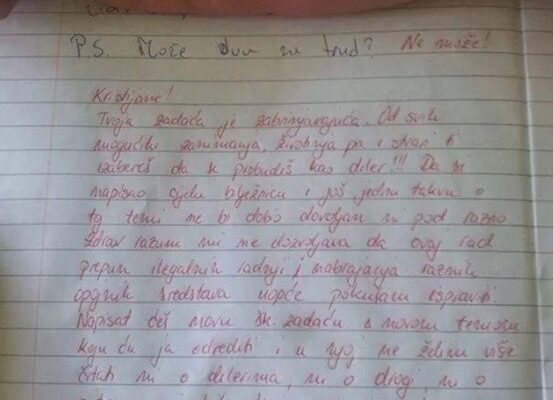 P.S. Može dva za trud? Ne može!
Kristijane!
Tvoja zadaća je zabrinjavajuća. Od svih
mogućih zanimanja, životinja pa i stvari ti
izabereš da se probudiš kao diler!!! Da si
napisao cijelu bilježnicu i još jednu takvu o
toj temi ne bi dobio dovoljan ni pod razno.
Zdrav razum mi ne dozvoljava da ovaj rad
prepun ilegalnih radnji i nabrajanja raznih
opojnih sredstava uopće pokušam ispraviti.
Napisat ćeš novu šk. zadaću s novom temom
koju ću ja odrediti i u njoj ne želim više
čitati ni o dilerima, ni o drogi, ni o